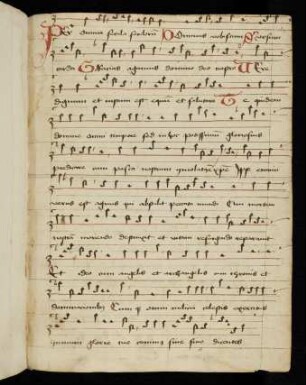 Per omnia secula seculorum Dominus vobiscum Sursum
corda Gratias agamus domino deo nostro Vere
dignum et iustum est equum et salutare Te quidem
domine omni tempore sed in hoc potissimum gloriosius
predicare cum pascha nostrum ymolatus est xpc Ipse enim
verus est agnus qui abstulit peccata mundi Qui mortem
nostram moriendo destruxit et vitam resurgendo reparavit
Et ideo cum angelis et archangelis cum thronis et
dominationibus Cumque omni milicia celestis exercitus
ymnum glorie tue canimus sine fine dicentes